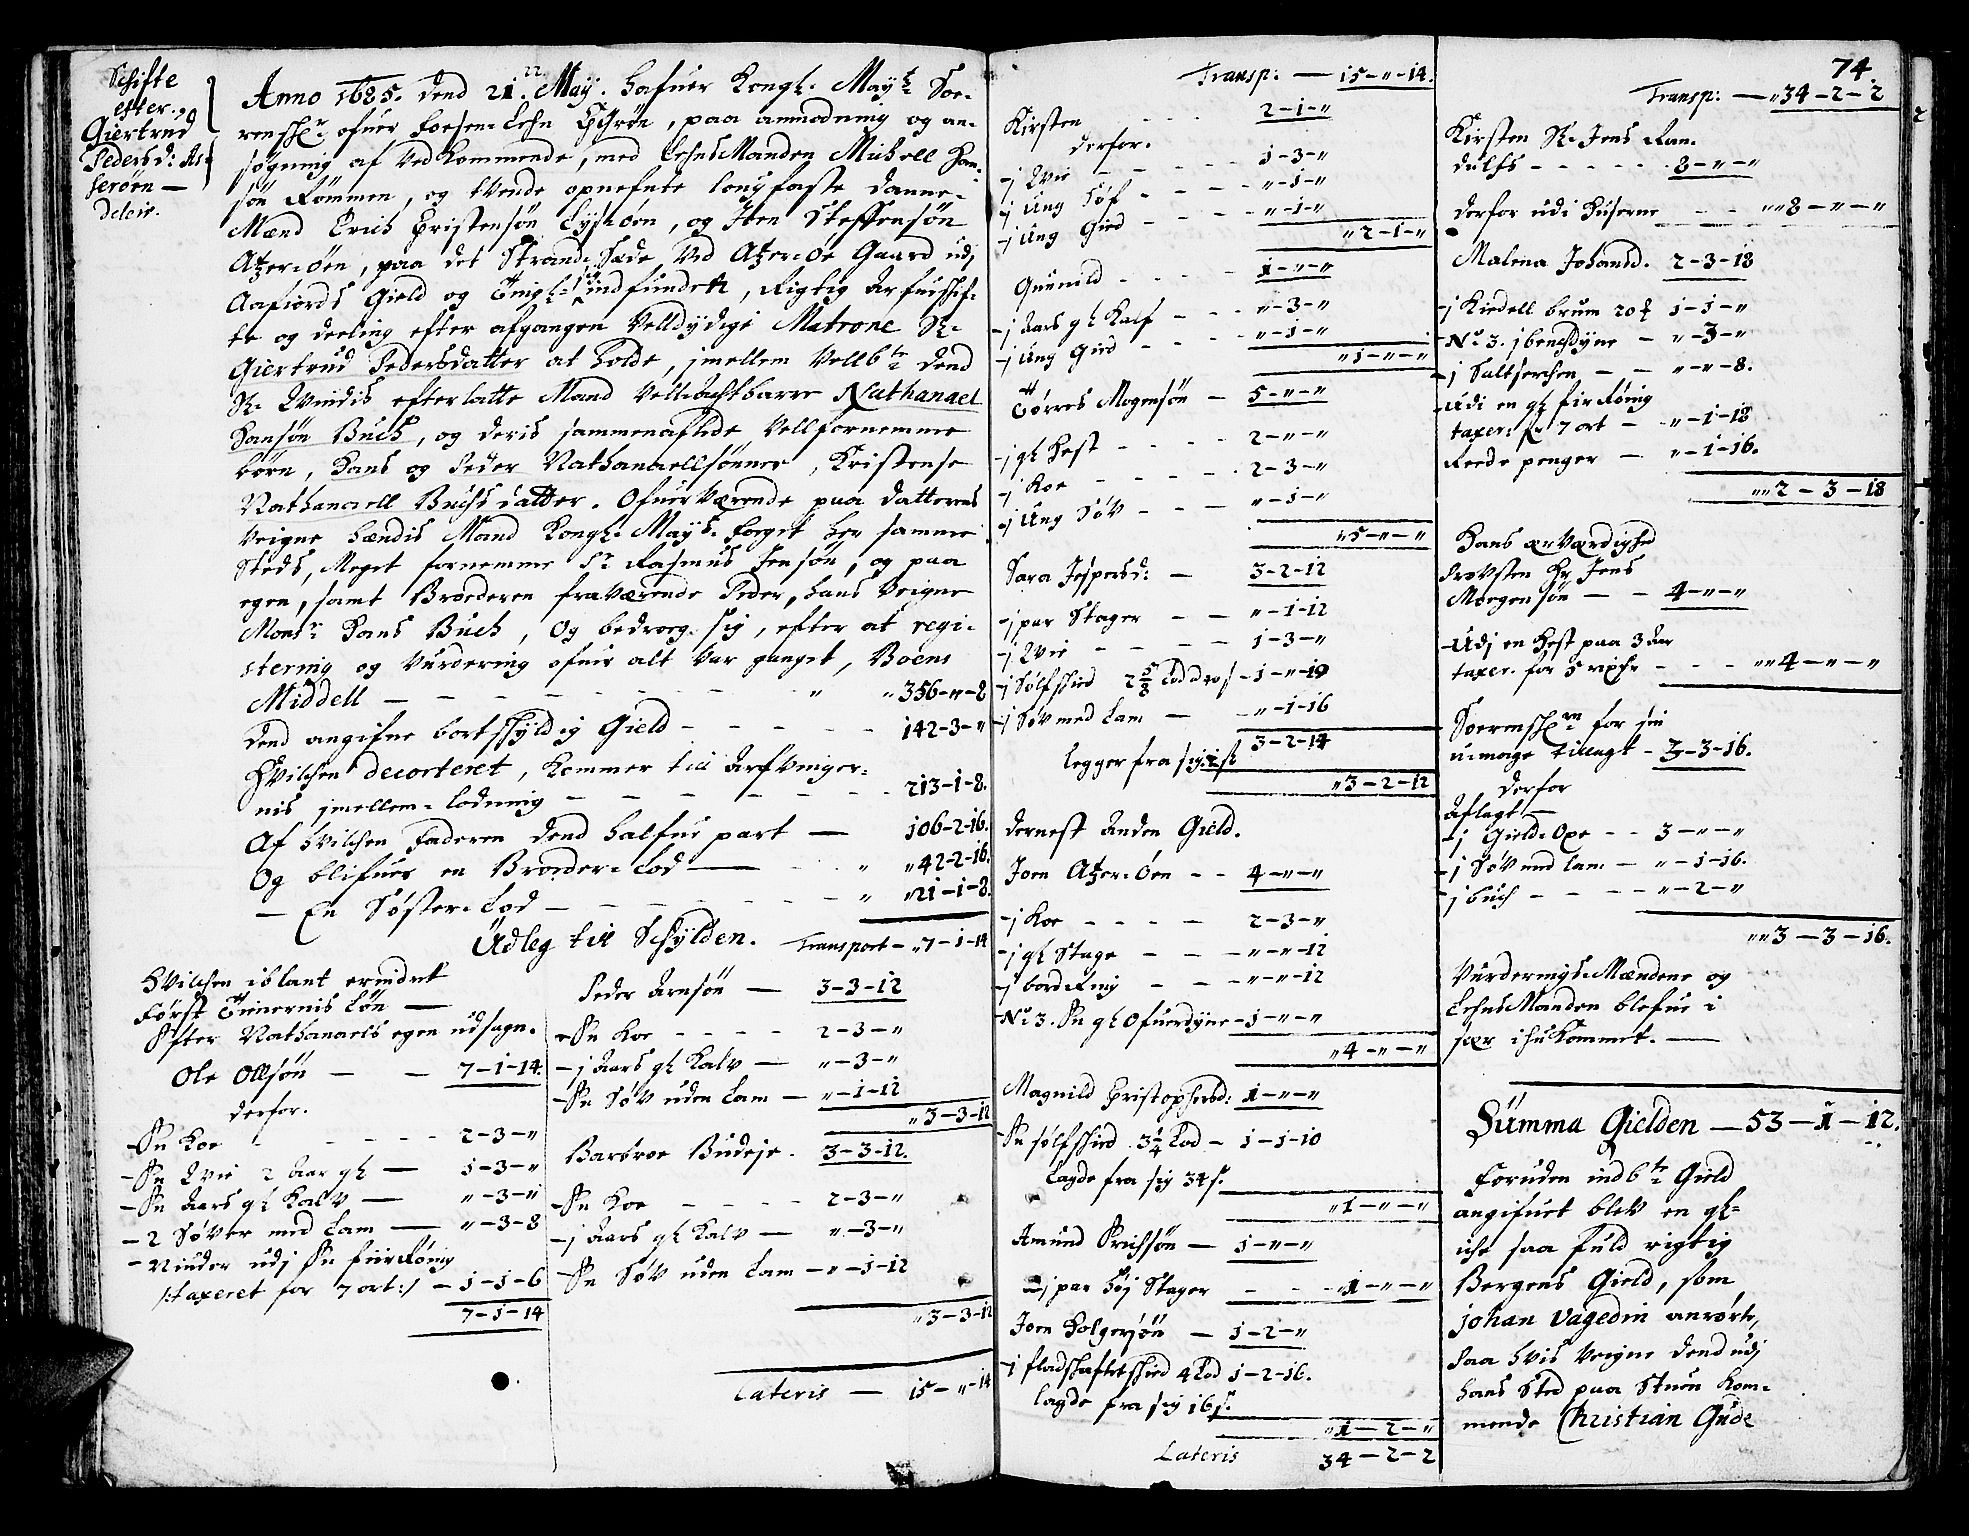 Schifte
efter
Giertrud
Pedersd: As¬
serøen —
deleir.
Anno 1685. dend 21. 22 May. hafuer Kongl. Mayts Soe¬
renskr. ofuer Foesen-Lehn paa anmodning og an¬
søgning af Vedkommende, med LehnsManden Michell Han¬
søn Rømmen, og tvende opnefnte lougfaste Danne¬
Mænd Erich Christensøn Lysøen, og Joen Steffensøn
Atzer-øen, paa det Strand-Sæde ved Atzer-oe Gaard udj
Aafiords Gield og indfundet, Rigtig Arfueskif¬
te og deeling efter afgangen Velldydige Matrone Sl.
Giertrud Pedersdatter at holde, jmellem Vellbte dend
Sl. Qvindis efterlatte Mand Vellachtbarre Nathanael
Hansøn Buch, og deris sammenaflede Vellfornemme
børn, Hans og Peder Nathanaellsønner, Kristense
Nathanaell Buchs datter. Ofuerværende paa datterens
veigne hendis Mand Kongl. Mays. foeget her samme
steds, Meget fornemme Sr Rasmus Jensøn, og paa
egen, samt Broderen fraværende Peder, hans Veigne
Monsr Hans Buch, og bedrog sig, efter at regi¬
stering og Vurdering ofuer alt var ganget, Boens
Middell — 356-"-8
dend angifne bortskyldig Gield — 142-3-"
Hvilchen decorteret, kommer till Arfvinger¬
nis jmellem-lodning — 213-1-8.
Af hvilchen Faderen dend halfue part — 106-2-16.
Og blifuer en Broder-Lod — " "42-2-16.
— En Søster-Lod — " "21-1-8.
Udleg till Schylden. Transport — "7-1-14
Hvilchen iblant erindret
Først Tienernis Løn —
Efter Nathanaels egen udsagn.
Ole Ollsøn — 7-1-14.
derfor.
-En Koe — 2-3-"
-En Qvie 2 Aar gl — 1-3-"
-En Aars gl Kalv — "-3-"
-2 Søver med Lam — "-3-8
-Vinder udj En fiirRønig
/:taxeret for 7 ort:/ — 1-1-6
7-1-14
Peder Arnsøn — 3-3-12
-En Koe — 2-3-"
-1 Aars gl Kalv — "-3-"
-En Søv uden Lam — "-1-12
"3-3-12
Barbroe Budeje. 3-3-12.
-En Koe — 2-3-"
-1 Aars gl Kalv — "-3-"
-En Søv uden Lam — "-1-12
"3-3-12
Lateris — 15-"-14
Transp: — 15-"-14.
Kirsten — 2-1-"
derfor.
-1 Qvie — 1-3-"
-1 Ung Søf — "-1-"
-1 Ung Gied — "-1-"
"2-1-"
Gunnild — 1-"-"
-1 Aars gl Kalf — "-3-"
-1 Ung Gied — "-1-"
"1-"-"
Tørres Mogensøn — 5-"-"
-1 gl Hest — 2-"-"
-1 Koe — 2-3-"
-1 Ung Søv — "-1-"
"5-"-"
Sara Jespersd: — 3-2-12
-1 par Stager — "-1-12
-1 Qvie — 1-3-"
-1 Sølfskied 2 5/8 Lod — 1-"-10
-1 Søv med Lam — "-1-16
3-2-14
legger fra sig 2 s
"3-2-12
Dernest Anden Gield.
Joen Atzer-øen — 4-"-"
-1 Koe — 2-3-"
-1 gl Stage — "-"-12
-1 bordRing — "-"-12
-No 3. En gl Ofuerdyne — 1-"-"
"4-"-"
Magnild Christophersd: 1-"-"
-En sølfskied 3 1/4 Lod — 1-1-10
Lagde fra sig 34 s.
"1-"-"
Amund Erichsøn — 1-"-"
-1 par høj Stager — "1-"-"
Joen Holgersøn — 1-2-"
-1 fladskaftetskied 4 Lod 1-2-16.
lagde fra sig 16 s.
"1-2-"
Lateris 34-2-2
74.
Transp: — "34-2-2
Kirsten Sl. Jens Ran¬
dulfs — 8-"-"
derfor udi Huserne — ""8-"-"
Malena Johansd. 2-3-18
-1 Kiedell brum 20 1-1-"
-No 3. 1 benchdyne — "-3-"
-1 Saltserchen — "-"-8.
-Udi en gl firRøing
taxer. for 7 ort — "-1-18
Reede penger — "-1-16.
""2-3-18
Hans ærværdighed
Provsten Hr Jens
Moegensøn — 4-"-"
-Udj en Hest paa 3 Aar
taxer. for 5 — ""4-"-"
Soerenskr for sin
u-mage tillagt — 3-3-16.
derfor
Aflagt —
-1 Gield-Oxe — 3-"-"
-1 Søv med Lam — "-1-16.
-1 buch — "-2-"
""3-3-16.
Vurderings-Mændene og
LehnsManden blefue i
sær ihukommet. —
Summa Gielden — 53-1-12.
Foruden indbte Gield
angifuet blev en gl¬
iche saa fuld rigtig
Bergens Gield, som
Johan Vagedin anrørte,
saa hvis Veigne dend udj
hans Sted paa Stuen kom¬
mende Christian Gude